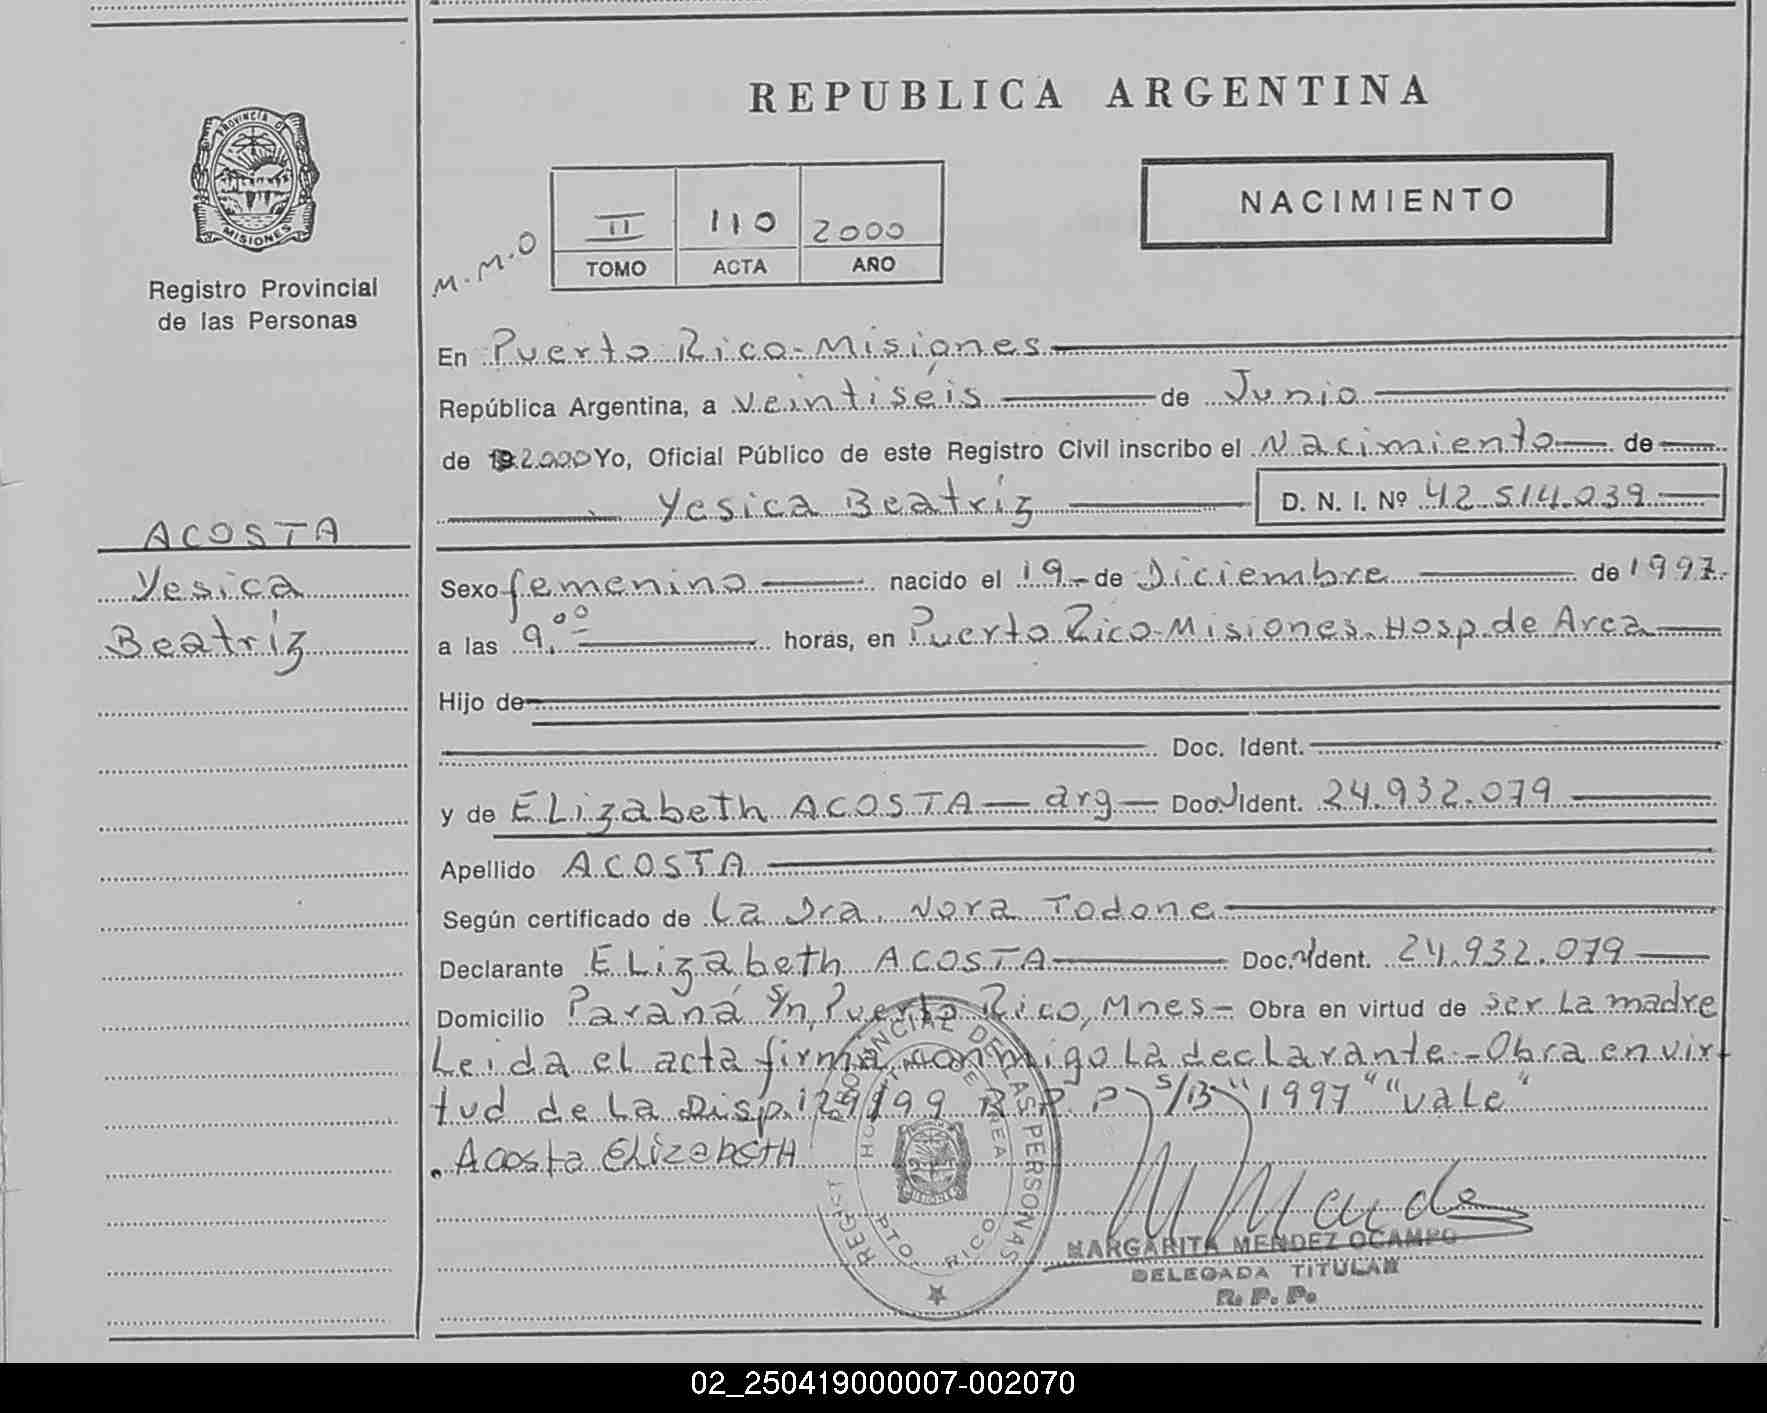 REPUBLICA ARGENTINA
PROVINCIA DE
MISIONES
Registro Provincial
de las Personas
NACIMIENTO
M.M.O
II 110 2000
TOMO ACTA AÑO
En Puerto Rico-Misiones
República Argentina, a veintiséis de Junio
de 2.000 Yo, Oficial Público de este Registro Civil inscribo el Nacimiento de
Yesica Beatríz D. N. I. Nº 42.514.039
ACOSTA
Yesica
Beatríz
Sexo femenino nacido el 19 de Diciembre de 1997.
a las 9,00 horas, en Puerto Rico-Misiones-Hosp.de Area
Hijo de
Doc. Ident.
y de ELizabeth ACOSTA - arg - Doc. Ident. 24.932.079
Apellido ACOSTA
Según certificado de La Dra. Nora Todone
Declarante ELizabeth ACOSTA Doc. Ident. 24.932.079
Domicilio Paraná s/n, Puerto Rico, Mnes - Obra en virtud de ser La madre
Leida el acta firma conmigo La decLarante.-Obra en vir
tud de La Disp.129/99 R.P.P. s/B "1997" "vale"
Acosta Elizabeth
REGIST PROVINCIAL DE LAS PERSONAS
PTO. RICO
MARGARITA MENDEZ OCAMPO
DELEGADA TITULAR
R. P. P.
02_250419000007-002070